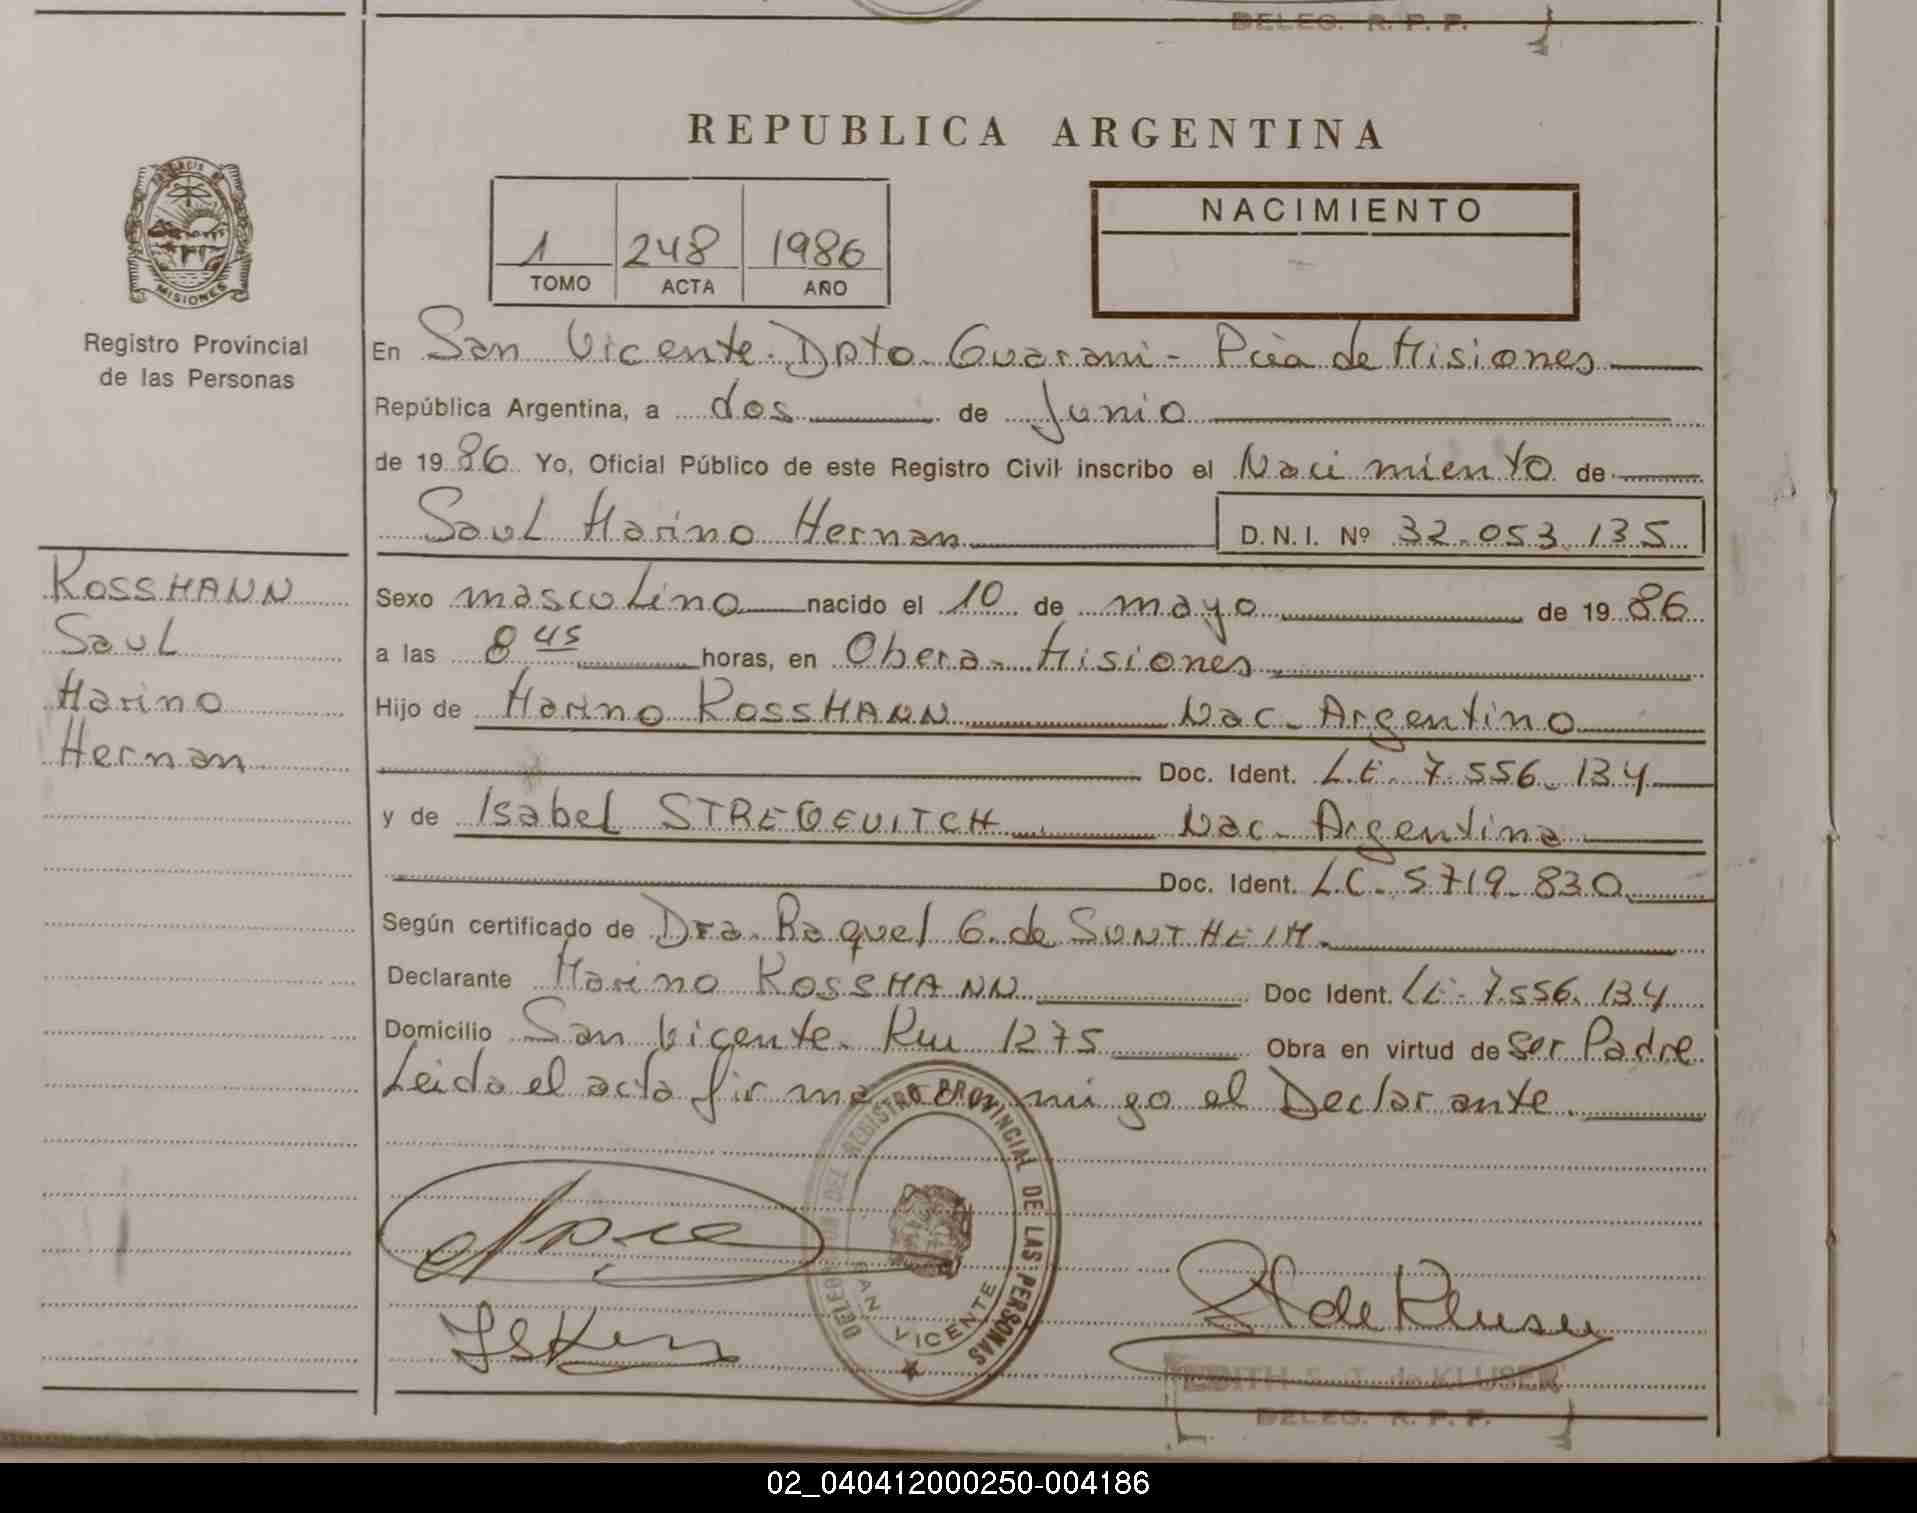 DELEG. R. P. P.
REPUBLICA ARGENTINA
NACIMIENTO
1 248 1986
TOMO ACTA AÑO
MISIONES
Registro Provincial
de las Personas
En San Vicente. Dpto. Guarani - Pcia de Misiones
República Argentina, a dos de Junio
de 1986 Yo, Oficial Público de este Registro Civil inscribo el Nacimiento de
Saul Marino Hernan D.N.I. Nº 32.053.135
ROSSMANN
Saul
Marino
Hernan
Sexo masculino nacido el 10 de mayo de 1986
a las 8 45 horas, en Obera - Misiones
Hijo de Marino ROSSMANN Nac. Argentino
Doc. Ident. L.E. 7.556.134
y de Isabel Nac. Argentina
Doc. Ident. L.C. 5719.830
Según certificado de Dra. Raquel G. de SONTHEIM
Declarante Marino ROSSMANN Doc Ident. LE. 7.556.134
Domicilio San Vicente. Km 1275 Obra en virtud de ser Padre
Leida el acta firma conmigo el Declarante.
DELEGACION DEL REGISTRO PROVINCIAL DE LAS PERSONAS
SAN VICENTE
de Kluser
EDITH S. T. de KLUSER
DELEG. R. P. P.
02_040412000250-004186